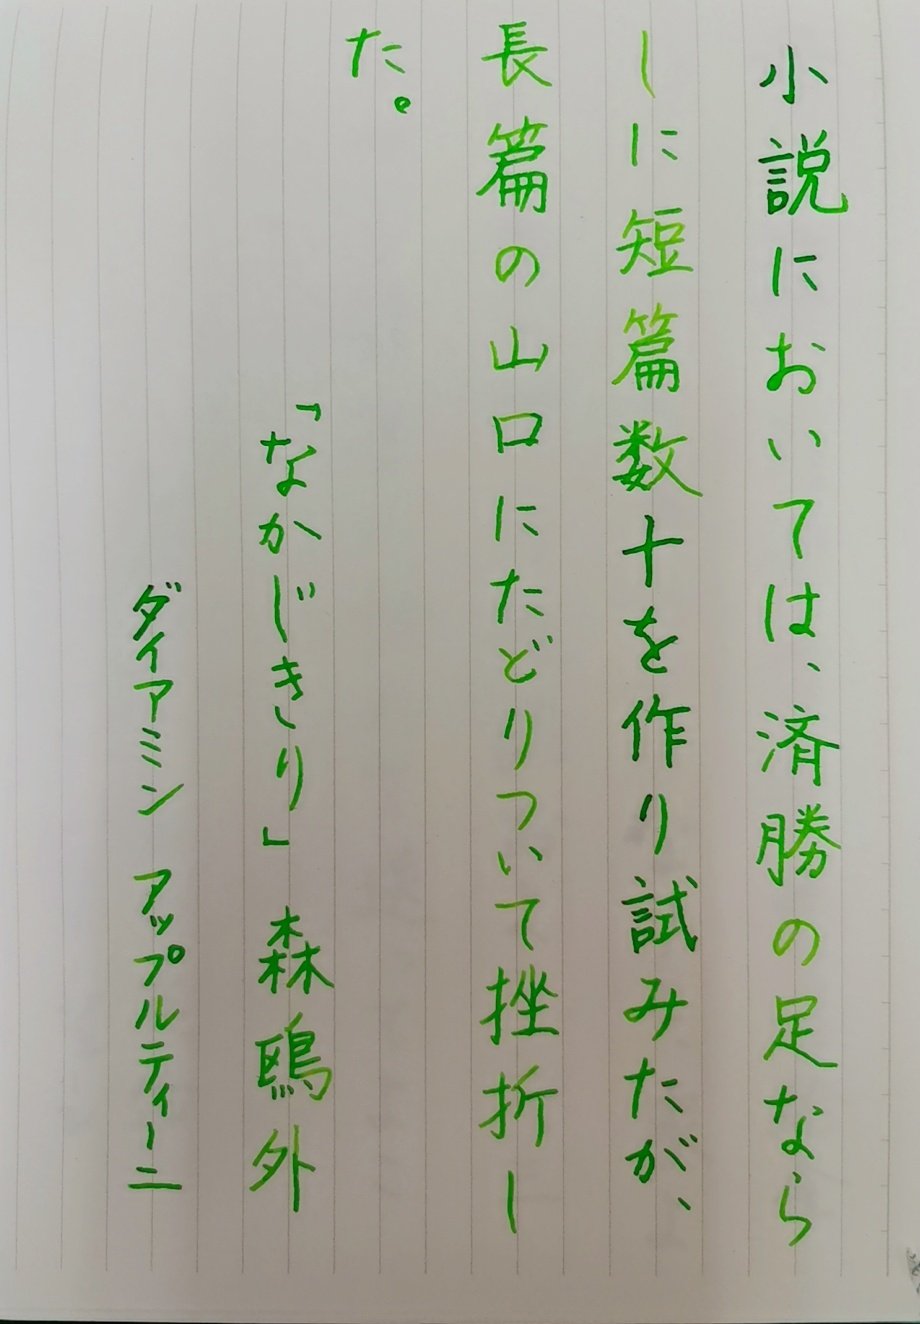 小説においては、済勝の足なら
しに短篇数十を作り試みたが、
長篇の山口にたどりついて挫折し
た。
「なかじきり」森鴎外
ダイアミン アップルティーニ